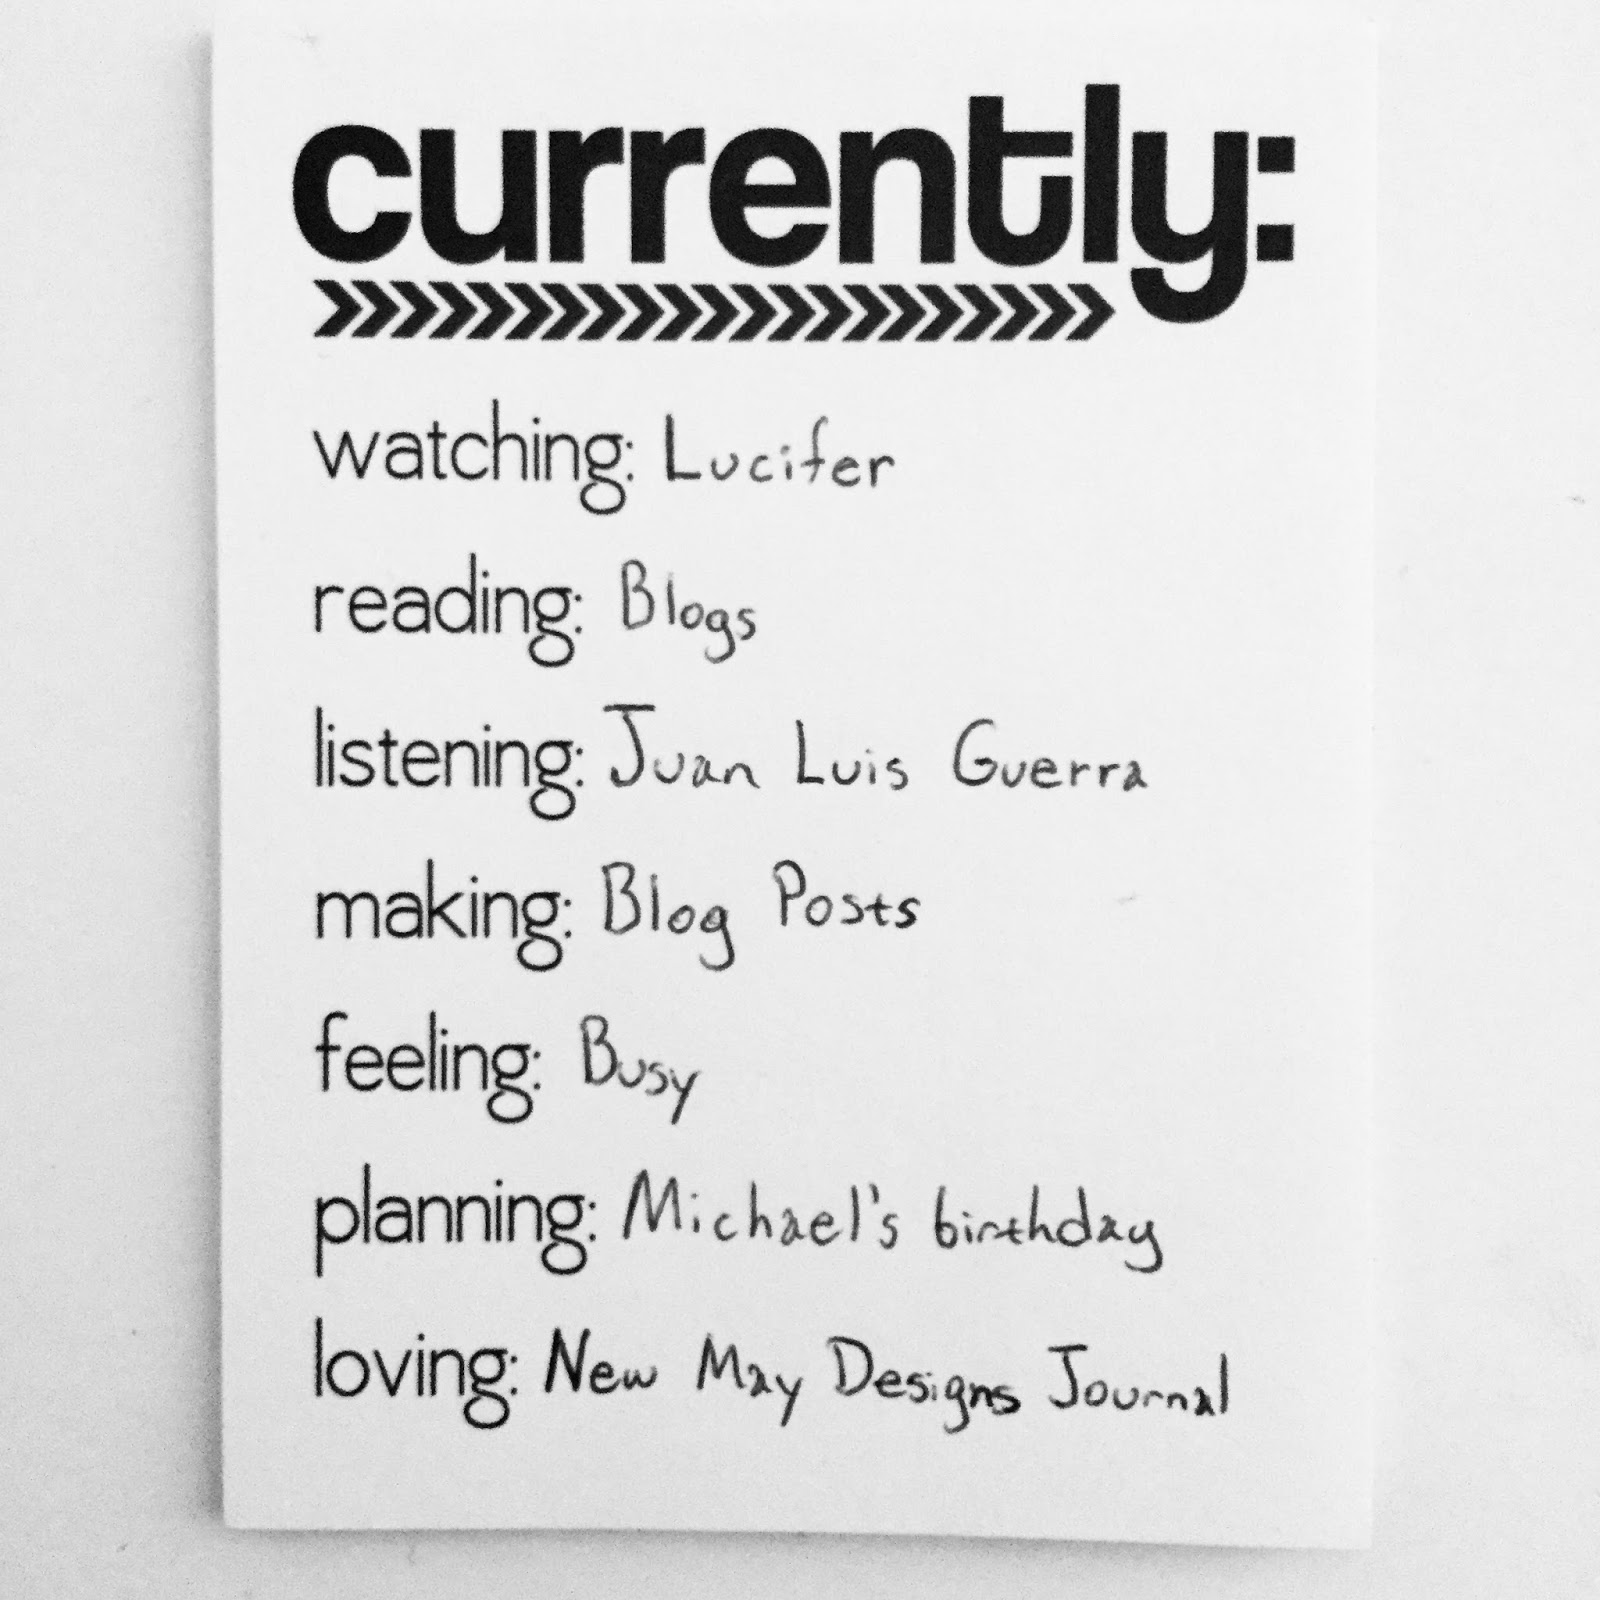 currently:
watching: Lucifer
reading: Blogs
listening: Juan Luis Guerra
making: Blog Posts
feeling: Busy
planning: Michael's birthday
loving: New May Designs Journal